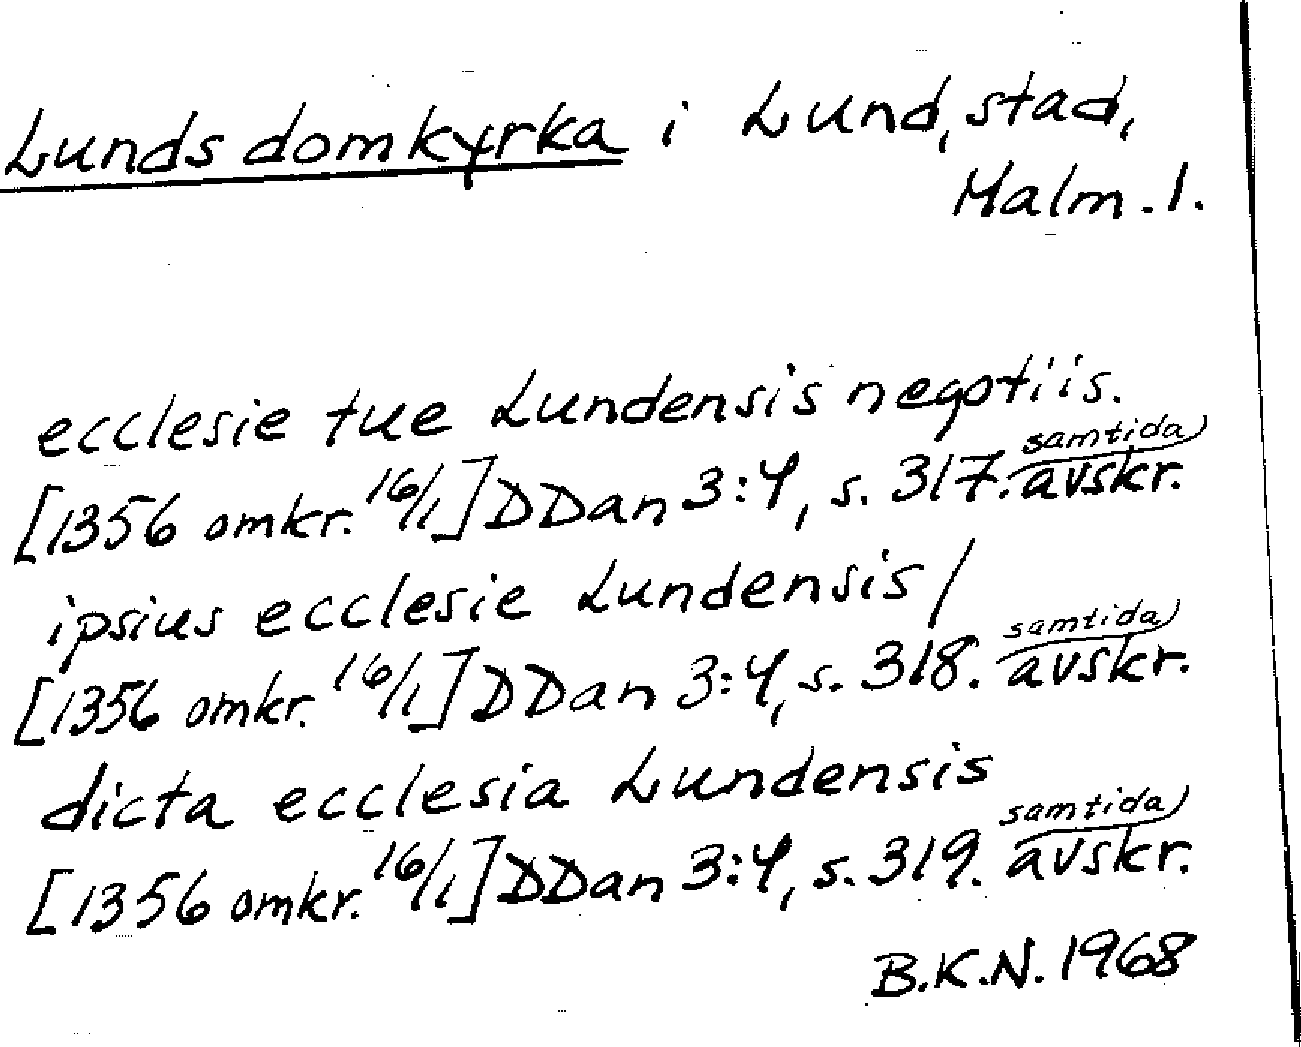 Lunds domkyrka i Lund, stad,
Malm. l.
ecclesie tue Lundensis negotiis.
[1356 omkr. 16/1] DDan 3:4, s. 317. samtida avskr.
ipsius ecclesie Lundensis/
[1356 omkr. 16/1] DDan 3:4, s. 318. samtida avskr.
dicta ecclesia Lundensis
[1356 omkr. 16/1] DDan 3:4, s. 319. samtida avskr.
B.K.N. 1968